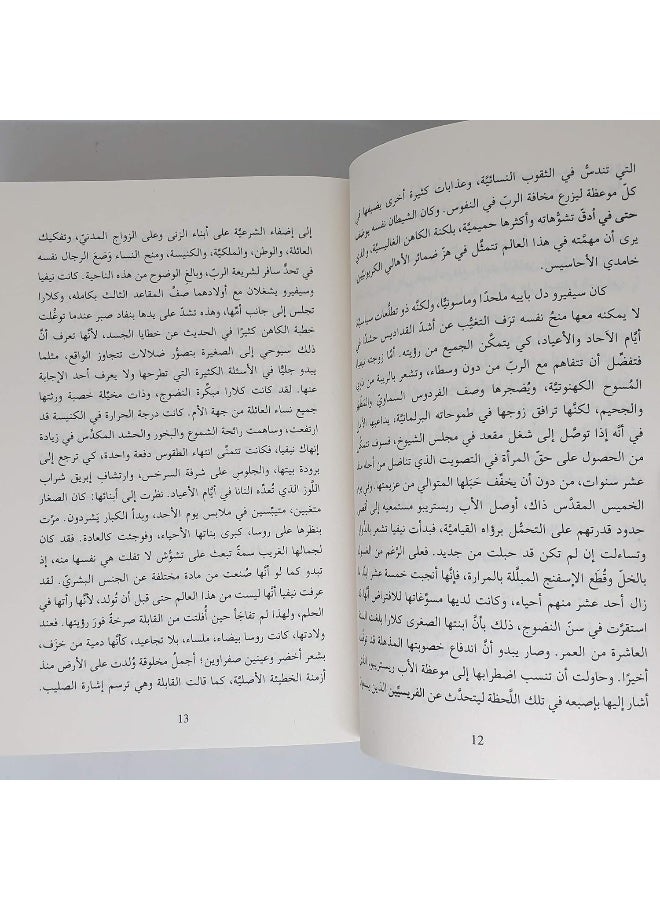 التي تندسُّ في الثقوب النسائيَّة، وعذابات كثيرة أخرى يضيفها في
كلّ موعظة ليزرع مخافة الربّ في النفوس. وكان الشيطان نفسه يوصف
حتى في أدقّ تشوُّهاته وأكثرها حميميَّة، بلكنة الكاهن الغاليسيَّة، والذي
يرى أن مهمَّته في هذا العالم تتمثَّل في هزّ ضمائر الأهالي الكريوليِّين
خامدي الأحاسيس.
كان سيفيرو دل بابيه ملحدًا وماسونيًّا، ولكنَّه ذو تطلُّعات سياسيَّة
لا يمكنه معها منحُ نفسه ترَف التغيُّب عن أشدّ القداديس حشدًا في
أيَّام الآحاد والأعياد، كي يتمكَّن الجميع من رؤيته. أمَّا زوجته نيفيا
فتفضِّل أن تتفاهم مع الربّ من دون وسطاء، وتشعر بالريبة من ذوي
المُسوح الكهنوتيَّة، ويُضجرها وصف الفردوس السماويّ والمَطْهر
والجحيم، لكنَّها ترافق زوجها في طموحاته البرلمانيَّة، يداعبها الأمل
في أنَّه إذا توصَّل إلى شغل مقعد في مجلس الشيوخ، فسوف تتمكَّن
من الحصول على حقّ المرأة في التصويت الذي تناضل من أجله منذ
عشر سنوات، من دون أن يخفِّف حَبَلها المتوالي من عزيمتها. وفي يوم
الخميس المقدَّس ذاك، أوصل الأب ريستريبو مستمعيه إلى أقصى
حدود قدرتهم على التحمُّل برؤاه القياميَّة، فبدأت نيفيا تشعر بالدُّوار
وتساءلت إن لم تكن قد حبلت من جديد. فعلى الرُّغم من الغسول
بالخلّ وقُطَع الإسفنج المبلَّلة بالمرارة، فإنَّها أنجبت خمسة عشر ابنًا، ما
زال أحد عشر منهم أحياء، وكانت لديها مسوِّغاتها للافتراض أنَّها قد
استقرَّت في سنّ النضوج، ذلك بأنَّ ابنتها الصغرى كلارا بلغت السنة
العاشرة من العمر. وصار يبدو أنَّ اندفاع خصوبتها المذهلة قد توقَّف
أخيرًا. وحاولت أن تنسب اضطرابها إلى موعظة الأب ريستريبو الذي
أشار إليها بإصبعه في تلك اللَّحظة ليتحدَّث عن الفريسيِّين الذين يسعون
12
إلى إضفاء الشرعيَّة على أبناء الزنى وعلى الزواج المدنيّ، وتفكيك
العائلة، والوطن، والملكيَّة، والكنيسة، ومنح النساء وَضعَ الرجال نفسه
في تحدٍّ سافر لشريعة الربّ، وبالغ الوضوح من هذه الناحية. كانت نيفيا
وسيفيرو يشغلان مع أولادهما صفّ المقاعد الثالث بكامله، وكلارا
تجلس إلى جانب أمّها، وهذه تشدّ على يدها بنفاد صبر عندما توغَّلت
خطبة الكاهن كثيرًا في الحديث عن خطايا الجسد، لأنّها تعرف أنَّ
ذلك سيوحي إلى الصغيرة بتصوُّر ضلالات تتجاوز الواقع، مثلما
يبدو جليًّا في الأسئلة الكثيرة التي تطرحها ولا يعرف أحد الإجابة
عنها. لقد كانت كلارا مبكّرة النضوج، وذات مخيَّلة خصبة ورثتها
جميع نساء العائلة من جهة الأم. كانت درجة الحرارة في الكنيسة قد
ارتفعت، وساهمت رائحة الشموع والبخور والحشد المكدَّس في زيادة
إنهاك نيفيا، فكانت تتمنَّى انتهاء الطقوس دفعة واحدة، كي ترجع إلى
برودة بيتها، والجلوس على شرفة السرخس، وارتشاف إبريق شراب
اللَّوز الذي تُعدّه النانا في أيَّام الأعياد. نظرت إلى أبنائها: كان الصغار
متعبين، متيبِّسين في ملابس يوم الأحد، وبدأ الكبار يَشردون. مرَّت
بنظرها على روسا، كبرى بناتها الأحياء، وفوجئت كالعادة. فقد كان
لجمالها الغريب سمةٌ تبعث على تشوُّش لا تفلت هي نفسها منه، إذ
تبدو كما لو أنَّها صُنعت من مادة مختلفة عن الجنس البشريّ. لقد
عرفت نيفيا أنَّها ليست من هذا العالم حتى قبل أن تُولد، لأنّها رأتها في
الحلم، ولهذا لم تفاجَأ حين أُفلتت من القابلة صرخةُ فورَ رؤيتها. فعند
ولادتها، كانت روسا بيضاء، ملساء، بلا تجاعيد، كأنَّها دمية من خزَف،
بشعر أخضر وعينين صفراوين؛ أجملُ مخلوقة وُلدت على الأرض منذ
أزمنة الخطيئة الأصليَّة، كما قالت القابلة وهي ترسم إشارة الصليب.
13